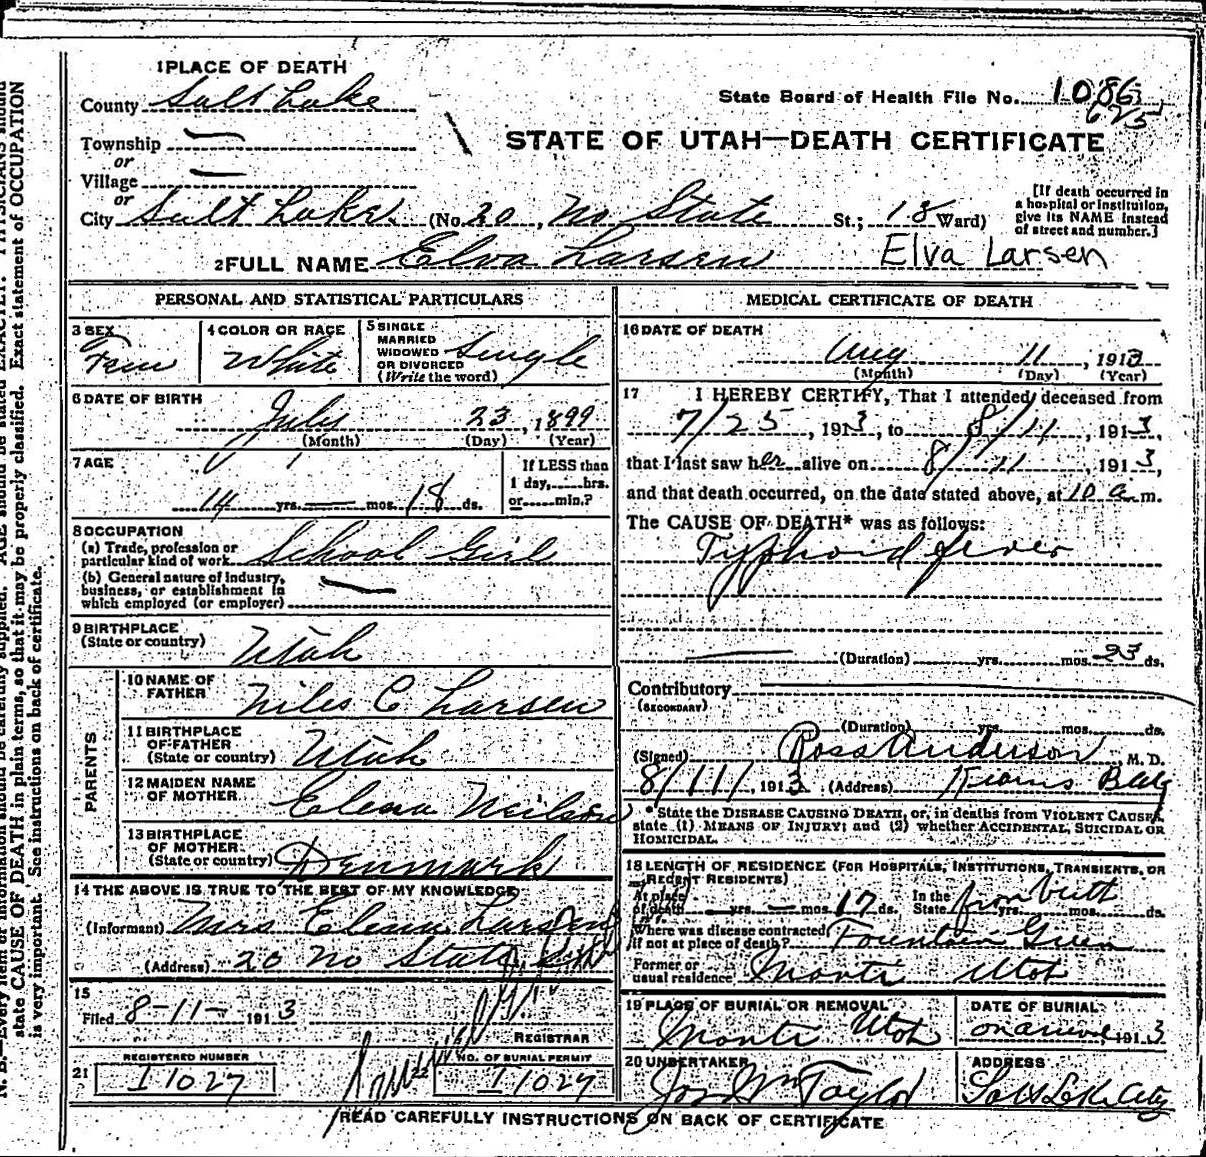 1 PLACE OF DEATH
County Salt Lake
State Board of Health File No. 1086
625
Township —
or
Village —
or
STATE OF UTAH—DEATH CERTIFICATE
City Salt Lake. (No. 20, No State St.; 18 Ward)
[If death occurred in a hospital or institution, give its NAME instead of street and number.]
2 FULL NAME Elva Larsen Elva Larsen
PERSONAL AND STATISTICAL PARTICULARS
3 SEX
Fem
4 COLOR OR RACE
White
5 SINGLE
MARRIED
WIDOWED
OR DIVORCED
(Write the word)
Single
6 DATE OF BIRTH
July 23, 1899
(Month) (Day) (Year)
7 AGE
14 yrs. — mos. 18 ds.
If LESS than
1 day, hrs.
or min.?
8 OCCUPATION
(a) Trade, profession or
particular kind of work School Girl
(b) General nature of industry,
business, or establishment in
which employed (or employer) —
9 BIRTHPLACE
(State or country)
Utah
PARENTS
10 NAME OF
FATHER
Niles C Larsen
11 BIRTHPLACE
OF FATHER
(State or country)
Utah
12 MAIDEN NAME
OF MOTHER
Elena Neilson
13 BIRTHPLACE
OF MOTHER
(State or country)
Denmark
14 THE ABOVE IS TRUE TO THE BEST OF MY KNOWLEDGE
(Informant) Mrs Elena Larsen
(Address) 20 No State
15
Filed 8-11- 1913
REGISTRAR
21
REGISTERED NUMBER
I 1027
NO. OF BURIAL PERMIT
I 1027
MEDICAL CERTIFICATE OF DEATH
16 DATE OF DEATH
Aug 11, 1913
(Month) (Day) (Year)
17 I HEREBY CERTIFY, That I attended deceased from
7/25, 1913, to 8/11, 1913,
that I last saw her alive on 8/11, 1913,
and that death occurred, on the date stated above, at 10 a m.
The CAUSE OF DEATH* was as follows:
Typhoid fever
(Duration) yrs. mos. 23 ds.
Contributory
(SECONDARY)
(Duration) yrs. mos. ds.
(Signed) Ross Anderson M. D.
8/11/, 1913. (Address) Kearns Bldg
* State the DISEASE CAUSING DEATH, or, in deaths from VIOLENT CAUSES,
state (1) MEANS OF INJURY; and (2) whether ACCIDENTAL, SUICIDAL OR
HOMICIDAL.
18 LENGTH OF RESIDENCE (FOR HOSPITALS, INSTITUTIONS, TRANSIENTS, OR
RECENT RESIDENTS)
At place
of death — yrs. — mos. 17 ds. In the
State from birth yrs. mos. ds.
Where was disease contracted,
if not at place of death? Fountain Green
Former or
usual residence Manti Utah
19 PLACE OF BURIAL OR REMOVAL
Manti Utah
DATE OF BURIAL
on arrival, 1913
20 UNDERTAKER
Jos Wm Taylor
ADDRESS
Salt Lake City
READ CAREFULLY INSTRUCTIONS ON BACK OF CERTIFICATE
state CAUSE OF DEATH in plain terms, so that it may be properly classified. Exact statement of OCCUPATION
is very important. See instructions on back of certificate.